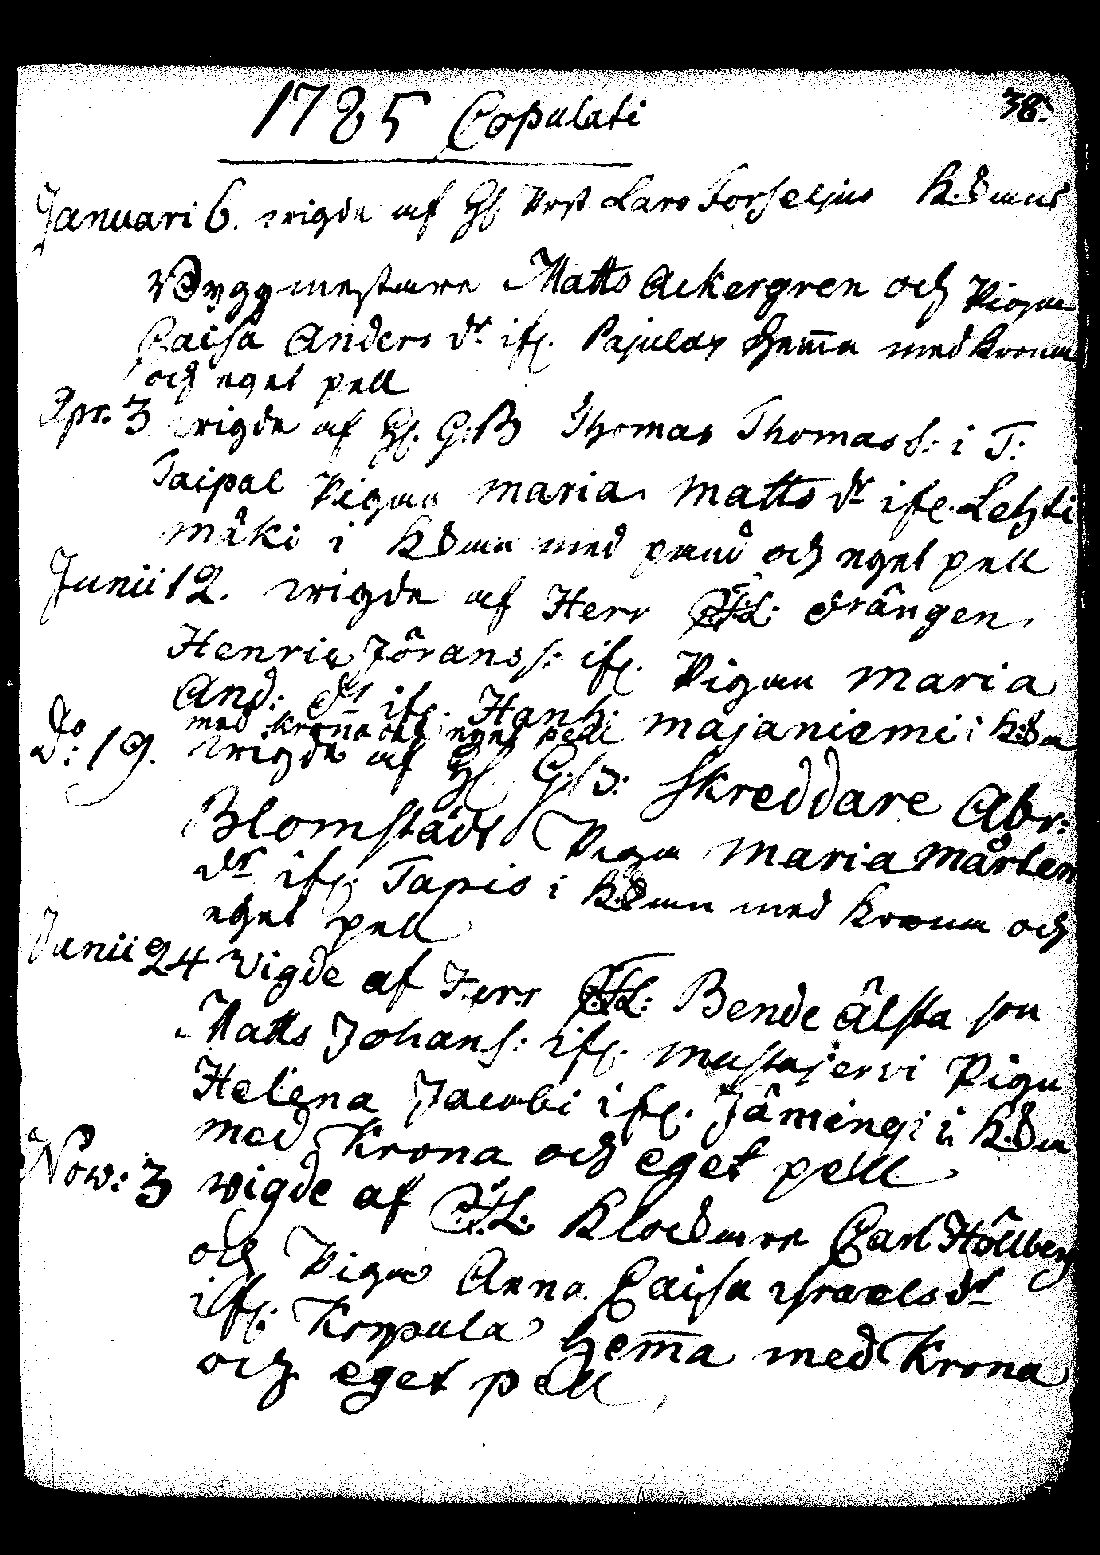 1785 Copulati 38.
Januari 6. wigde af H. Prst Lars Forseljus
Byggmestare Matts Ackergren och Pigan
Caisa Anders dr ifr. Pajulax hema med krona
och eget pell
Apr. 3 wigde af H. G:B Thomas Thomas s: i T:
Taipal Pigan maria Matts dr ifr. Lehti
mäki i med och eget pell
Junii 12. wigde af Herr drängen
Henric Jöranss: ifr. Pigan maria
And: dr ifr. Hanh: majaniemi i
med krona och eget pell
Do: 19. wigde af H. G:B: skreddare Abr:
Blomstädt Pigan maria Mårten
dr ifr. Tapio i med krona och
eget pell
Junii 24 vigde af Herr Bende älsta son
Matts Johans: ifr. mustajervi Pigan
Helena Jacobi ifr. Jämingi i
med Krona och eget pell
Now: 3 wigde af Klockare Carl Höllberg
och Pigan Anna Caisa israels dr
ifr. Korpula hema med Krona
och eget pell